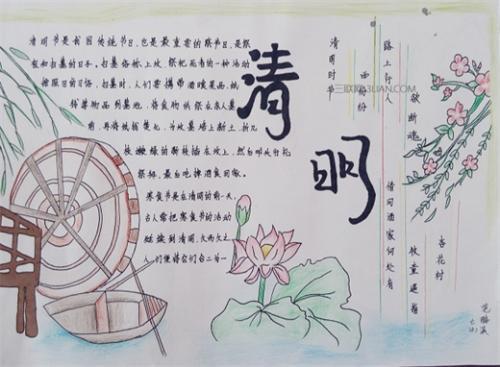 清明节是我国传统节日,也是最重要的祭节日,是祭
祀和扫墓的日子。扫墓俗称上坟,祭祀死者的一种活动
按照旧的习俗,扫墓时,人们要携带酒食果品,纸
钱等物品到墓地,将食物供祭在亲人墓
前,再将纸
为坟墓培上新土,折几
枝嫩绿的新枝插在坟上,然
最后吃掉酒食回家。
寒食节是在清明的前一天,
古人常把寒食节的活动
延续到清明,久而久之,
人们便将
合二为一
清明
清明时节
雨纷纷
路上行人
欲断魂
借问酒家何处有
牧童遥指
杏花村